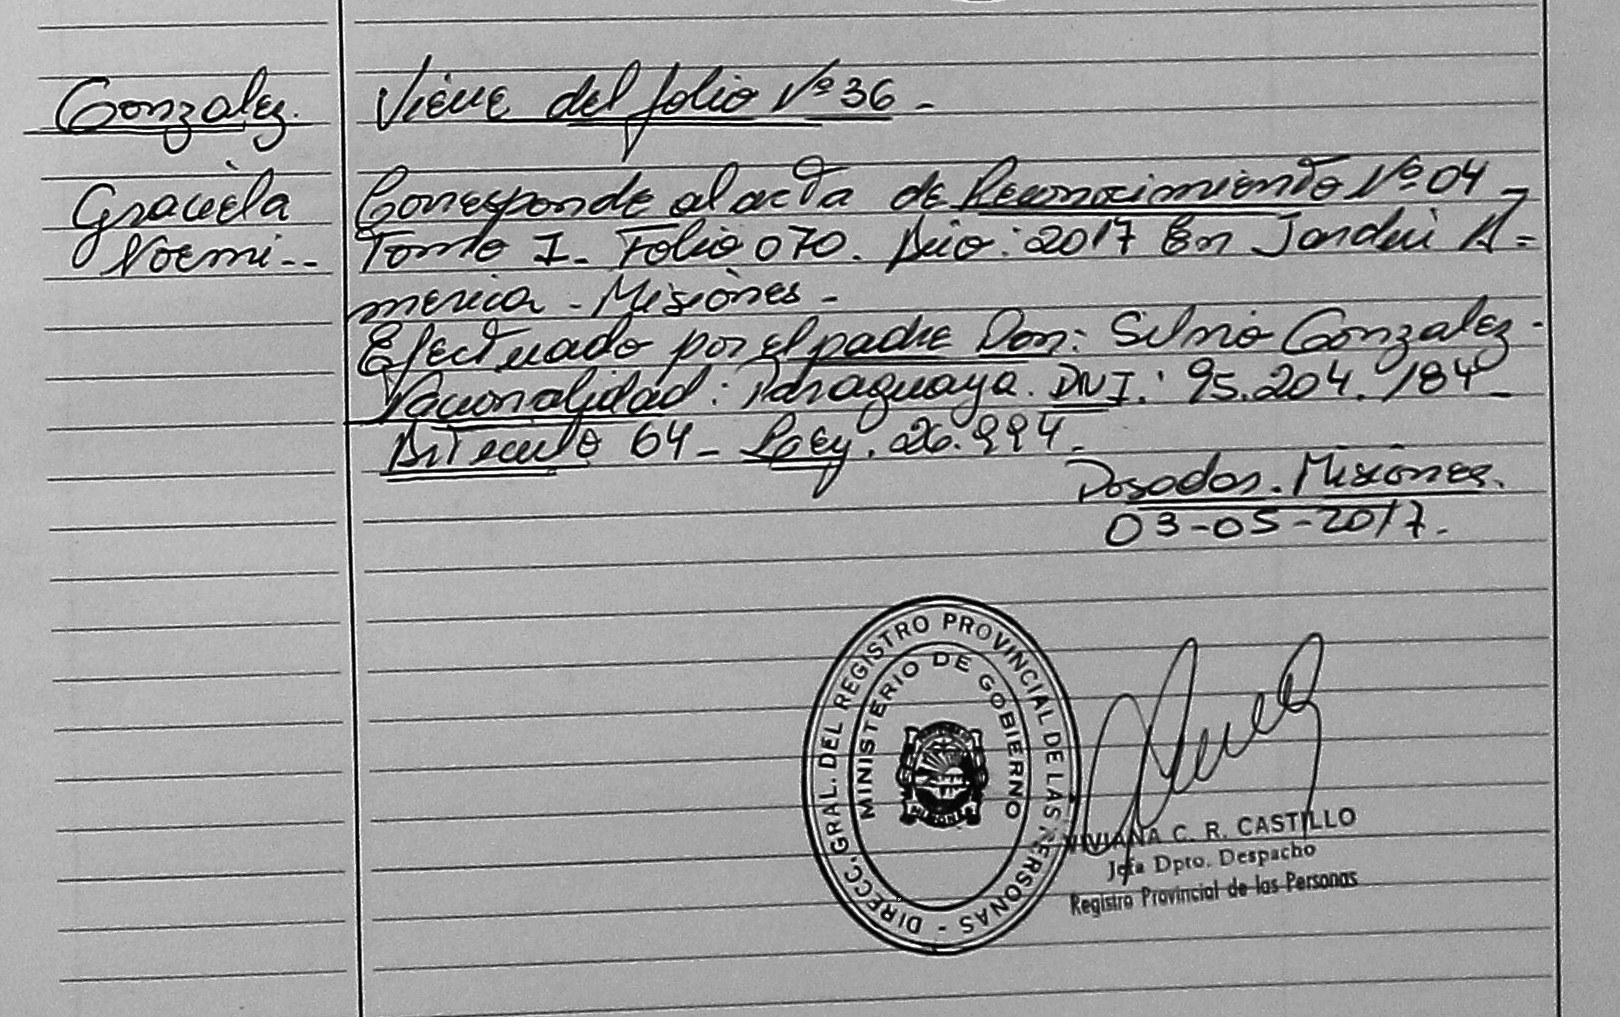 Gonzalez.
Graciela
Noemi--
Viene del folio Nº 36-
Corresponde al acta de Reconocimiento Nº 04-
Tomo I- Folio 070. Año: 2017 En Jardin A=
merica - Misiones-
Efectuado por el padre Don: Silvio Gonzalez-
Nacionalidad: Paraguaya. DNI: 95.204.184-
Articulo 64- Ley. 26.994-
Posadas. Misiones.
03-05-2017.
DIRECC. GRAL. DEL REGISTRO PROVINCIAL DE LAS PERSONAS -
MINISTERIO DE GOBIERNO
VIVIANA C. R. CASTILLO
Jefa Dpto. Despacho
Registro Provincial de las Personas